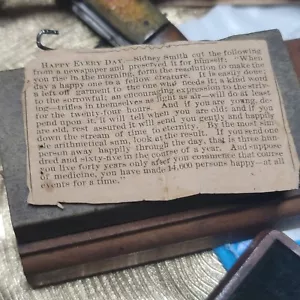 HAPPY EVERY DAY.—Sidney Smith cut the following
from a newspaper and preserved it for himself: "When
you rise in the morning, form the resolution to make the
day a happy one to a fellow creature. It is easily done;
a left off garment to the one who needs it; a kind word
to the sorrowful; an encouraging expression to the striv-
ing—trifles in themselves as light as air—will do at least
for the twenty-four hours. And if you are young, de-
pend upon it, it will tell when you are old; and if you
are old, rest assured it will send you gently and happily
down the stream of time to eternity. By the most sim-
ple arithmetical sum, look at the result. If you send one
person away happily through the day, that is three hun-
dred and sixty-five in the course of a year. And suppose
you live forty years only after you commence that course
of medicine, you have made 14,600 persons happy—at all
events for a time."